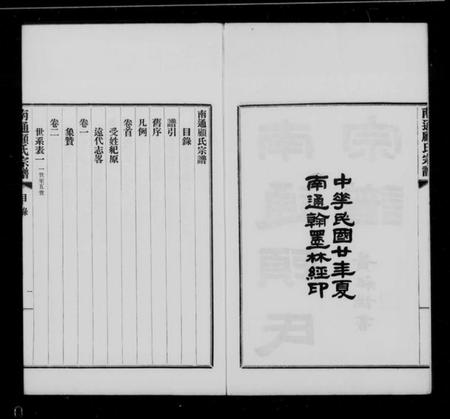 中華民國廿年夏
南通翰墨林經印
南通顧氏宗譜
目錄
譜引
舊序
凡例
卷首
受姓紀原
遠代志畧
卷一
象贊
卷二
世系表一 一世至五世
南通顧氏宗譜 目錄 一
南通顧氏宗譜